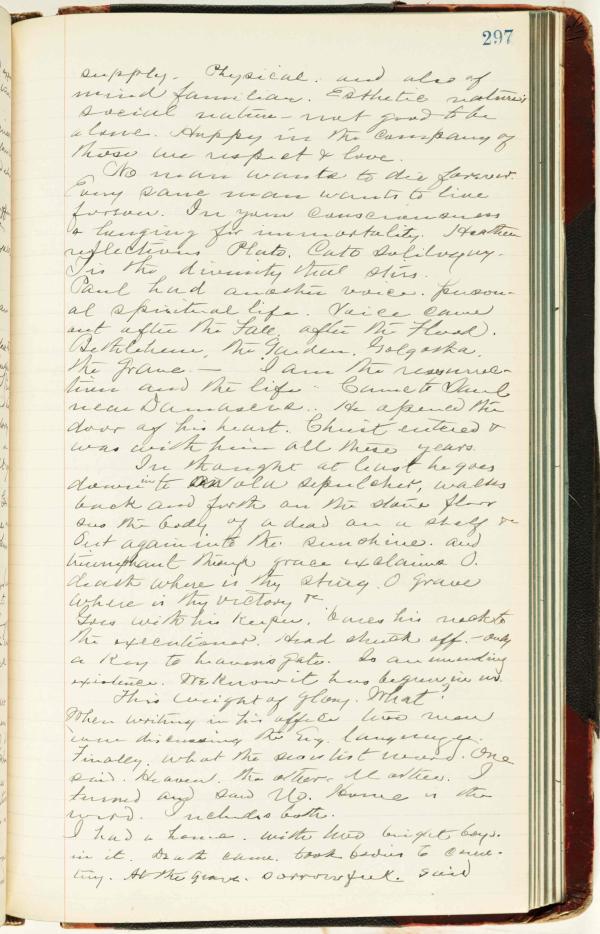 297
supply. Physical. and also of
mind familiar. Esthetic nature's
social nature - not good to be
alone. Happy in the company of
those we respect & love.
No man wants to die forever.
Every sane man wants to live
forever. In your consciousness
a longing for immortality. Heathen
reflections Plato. Cato Soliloquy.
Tis the divinity that stirs.
Paul had another voice. Person-
al spiritual life. Voice came
out after the Fall, after the Flood.
Bethlehem, the Garden, Golgotha,
the Grave. - I am the resurrec-
tion and the life. Came to Paul
near Damascus. He opened the
door of his heart. Christ entered &
was with him all these years.
In thought at least he goes
down into an old sepulcher, walks
back and forth on the stone floor
sees the body of a dead on a shelf &c
Out again into the sunshine. and
triumphant through grace exclaims O.
death where is thy sting. O grave
where is thy victory &c
Goes with his keeper, bares his neck to
the executioner. Head struck off. - only
a key to heavens gate. Is an unending
existence. We know it has begun in us.
This weight of glory. What?
When writing in his office two men
were discussing the Eng. language.
Finally, what the sweetest word. One
said. Heaven. the other. Mother. I
turned and said No. Home is the
word. Includes both.
I had a home. with two bright boys
in it. Death came. took bodies to ceme-
tery. At the grave. sorrowful. said